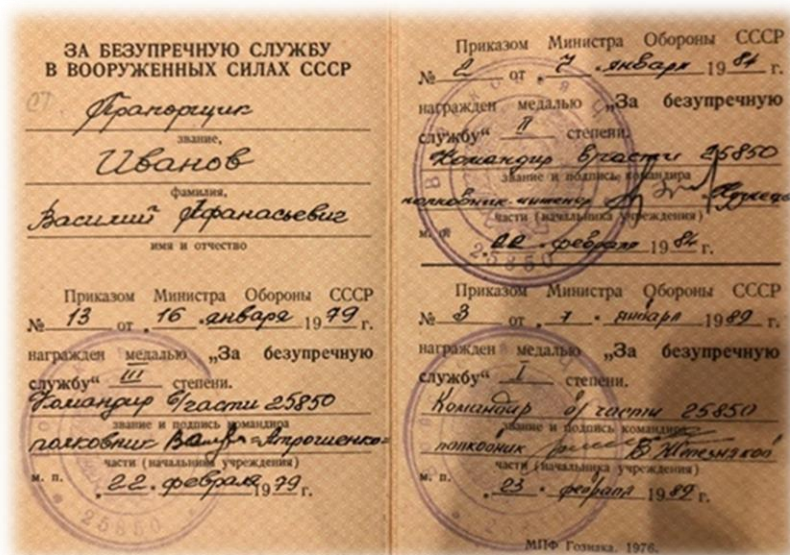 ЗА БЕЗУПРЕЧНУЮ СЛУЖБУ
В ВООРУЖЕННЫХ СИЛАХ СССР
Прапорщик
звание,
Иванов
фамилия,
Василий Афанасьевич
имя и отчество
Приказом Министра Обороны СССР
№ 13 от „16“ января 1979 г.
награжден медалью „За безупречную
службу“ III степени.
Командир в/части 25850
звание и подпись командира
полковник Атрошенко
части (начальника учреждения)
м. п.
„22“ февраля 1979 г.
25850
Приказом Министра Обороны СССР
№ 2 от „7“ января 1984 г.
награжден медалью „За безупречную
службу“ II степени.
Командир в/части 25850
звание и подпись командира
полковник-инженер
части (начальника учреждения)
м. п.
„22“ февраля 1984 г.
25850
Приказом Министра Обороны СССР
№ 3 от „7“ января 1989 г.
награжден медалью „За безупречную
службу“ I степени.
Командир в/части 25850
звание и подпись командира
полковник
части (начальника учреждения)
м. п.
„23“ февраля 1989 г.
МПФ Гознака. 1976.